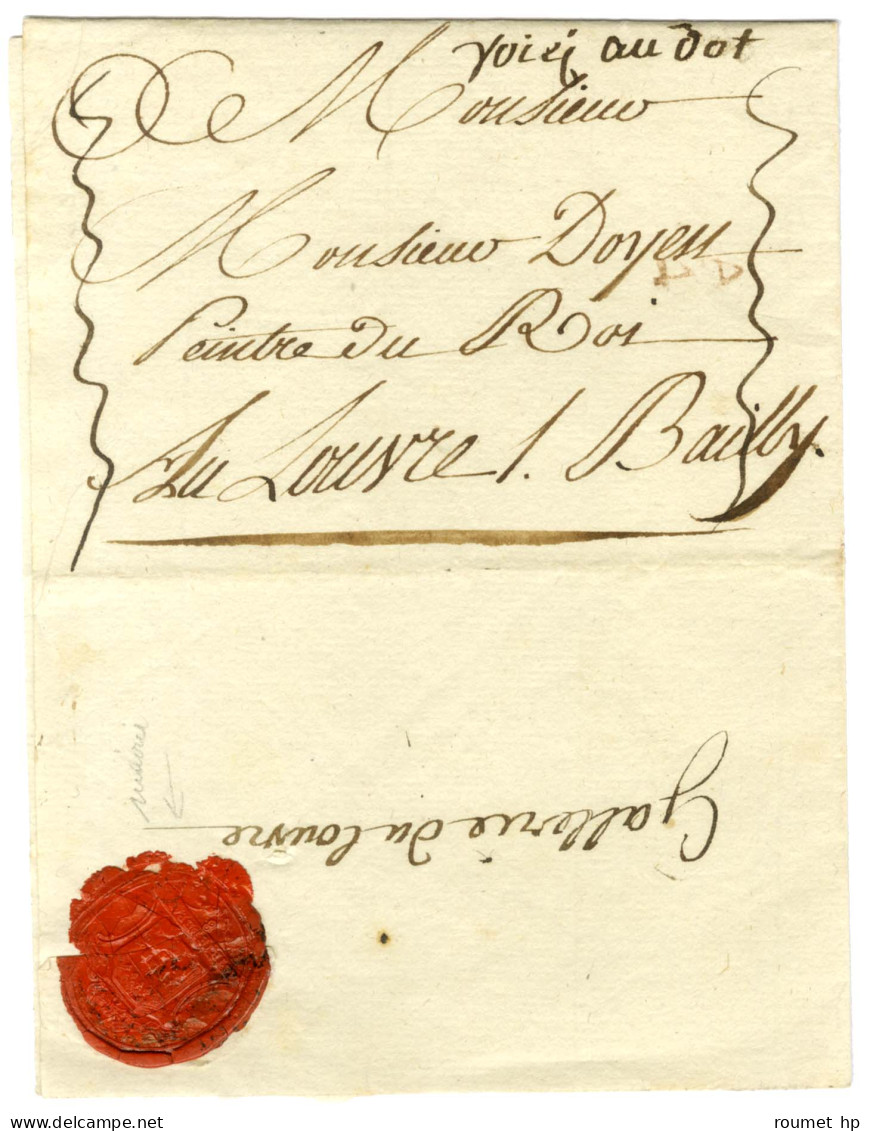 voiej au dot
Monsieur
Monsieur Doyen
Peintre du Roi
Au Louvre 1. Bailly.
Gallerie du louvre
roumet hp
Delcampe.net